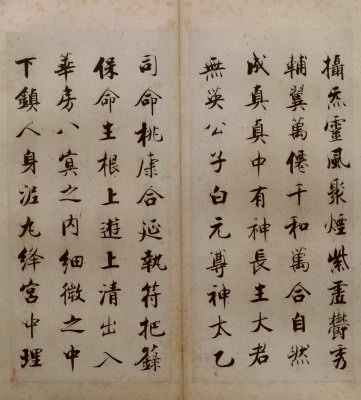 攝炁靈風聚煙紫虛鬱秀
輔翼萬僊千和萬合自然
成真真中有神長主大君
無英公子白元尊神太乙
司命桃康合延執符把籙
保命主根上遊上清出入
華房八冥之內細微之中
下鎮人身泥丸絳宮中理